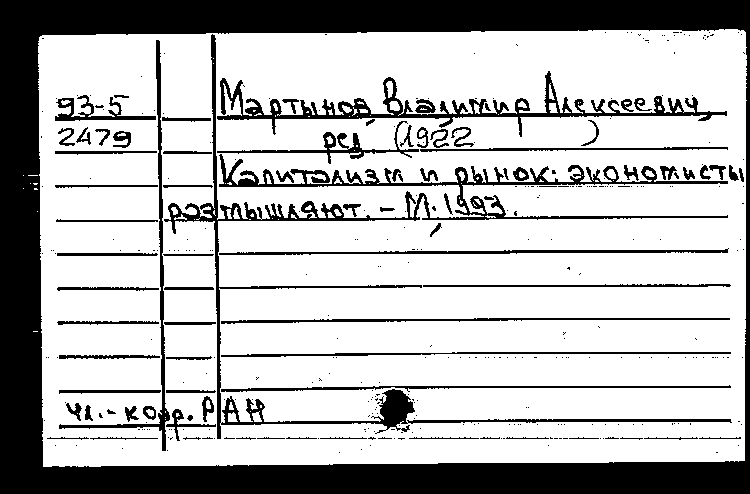 93-5 Мартынов, Владимир Алексеевич,
2479 ред. (1922 )
Капитализм и рынок: экономисты
размышляют. - М., 1993.
чл.-корр. РАН